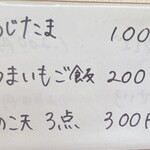 うじたま 100
つまいもご飯 200
のこ天 3点 300円